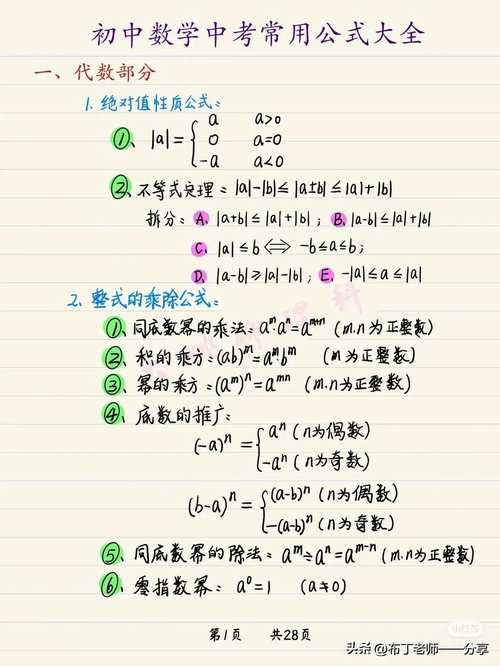 初中数学中考常用公式大全
一、代数部分
1. 绝对值性质公式:
①、|a|={ a a>0
0 a=0
-a a<0
②、不等式定理: |a|-|b|≤|a±b|≤|a|+|b|
拆分: A、|a+b|≤|a|+|b| ; B、|a-b|≤|a|+|b|
C、|a|≤b⇔ -b≤a≤b ;
D、|a-b|≥|a|-|b| ; E、-|a|≤a≤|a|
2. 整式的乘除公式:
①、同底数幂的乘法: aᵐ·aⁿ=aᵐ⁺ⁿ (m.n为正整数)
②、积的乘方: (ab)ᵐ=aᵐ·bᵐ (m为正整数)
③、幂的乘方: (aᵐ)ⁿ=aᵐⁿ (m.n为正整数)
④、底数的推广:
(-a)ⁿ={ aⁿ (n为偶数)
-aⁿ (n为奇数)
(b-a)ⁿ={ (a-b)ⁿ (n为偶数)
-(a-b)ⁿ (n为奇数)
⑤、同底数幂的除法: aᵐ÷aⁿ=aᵐ⁻ⁿ (m.n为正整数)
⑥、零指数幂: a⁰=1 (a≠0)
第1页 共28页
小红书
头条@布丁老师——分享